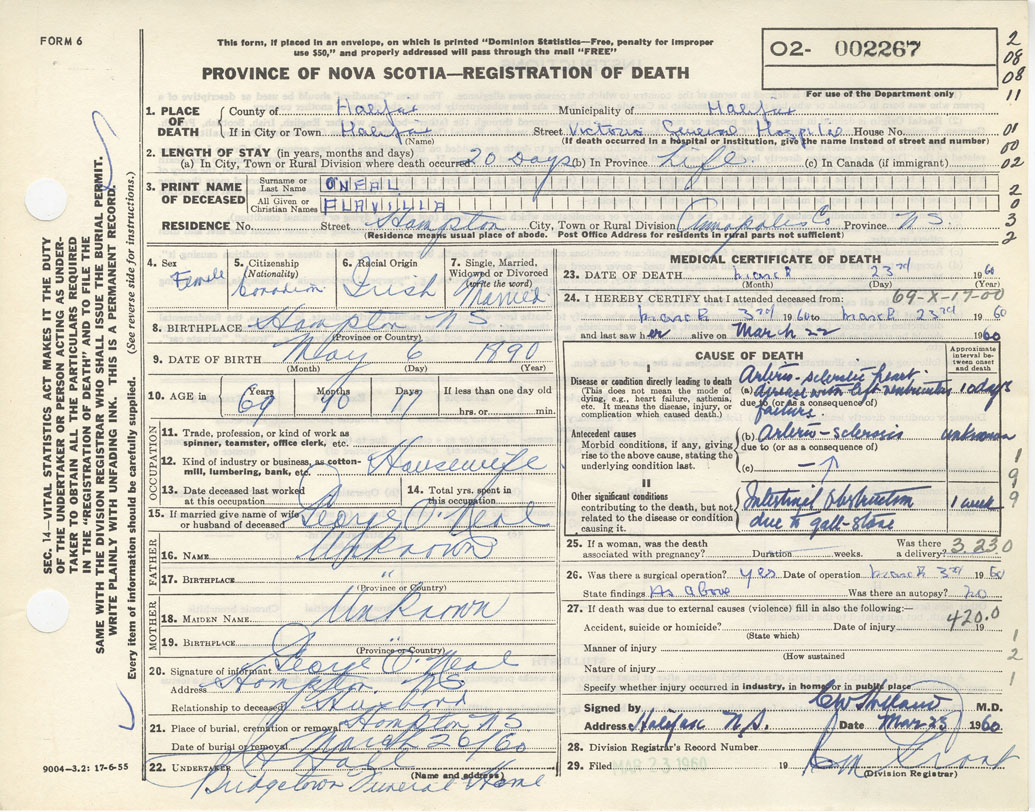 FORM 6
This form, if placed in an envelope, on which is printed "Dominion Statistics—Free, penalty for improper
use $50," and properly addressed will pass through the mail "FREE"
PROVINCE OF NOVA SCOTIA—REGISTRATION OF DEATH
O2- 002267
For use of the Department only
2
08
08
11
1. PLACE OF DEATH
County of Halifax Municipality of Halifax
If in City or Town Halifax Street Victoria General Hospital House No. 01
(Name) (If death occurred in a hospital or institution, give the name instead of street and number) 00
2. LENGTH OF STAY (in years, months and days)
(a) In City, Town or Rural Division where death occurred 20 Days (b) In Province Life (c) In Canada (if immigrant) 02
3. PRINT NAME OF DECEASED
Surname or Last Name ONEAL 2
All Given or Christian Names FLAVILLA 0
RESIDENCE No. Street Hampton City, Town or Rural Division Annapolis Co Province N S. 3
(Residence means usual place of abode. Post Office Address for residents in rural parts not sufficient) 2
SEC. 14—VITAL STATISTICS ACT MAKES IT THE DUTY
OF THE UNDERTAKER OR PERSON ACTING AS UNDER-
TAKER TO OBTAIN ALL THE PARTICULARS REQUIRED
IN THE "REGISTRATION OF DEATH" AND TO FILE THE
SAME WITH THE DIVISION REGISTRAR WHO SHALL ISSUE THE BURIAL PERMIT.
WRITE PLAINLY WITH UNFADING INK. THIS IS A PERMANENT RECORD.
Every item of information should be carefully supplied. (See reverse side for instructions.)
4. Sex Female
5. Citizenship (Nationality) Canadian
6. Racial Origin Irish
7. Single, Married, Widowed or Divorced (write the word) Married
8. BIRTHPLACE Hampton N S.
(Province or Country)
9. DATE OF BIRTH May 6 1890
(Month) (Day) (Year)
10. AGE in Years 69 Months 10 Days 17 If less than one day old
hrs. or min.
OCCUPATION
11. Trade, profession, or kind of work as
spinner, teamster, office clerk, etc.
12. Kind of industry or business, as cotton-
mill, lumbering, bank, etc. Housewife
13. Date deceased last worked
at this occupation
14. Total yrs. spent in
this occupation
15. If married give name of wife
or husband of deceased George O'Neal
FATHER
16. NAME Unknown
17. BIRTHPLACE "
(Province or Country)
MOTHER
18. MAIDEN NAME Unknown
19. BIRTHPLACE "
(Province or Country)
20. Signature of informant George O'Neal
Address Hampton, NS
Relationship to deceased Husband
21. Place of burial, cremation or removal Hampton NS
Date of burial or removal March 26/60
22. UNDERTAKER
(Name and address)
Bridgetown Funeral Home
9004—3.2: 17-6-55
MEDICAL CERTIFICATE OF DEATH
23. DATE OF DEATH March 23rd 1960
(Month) (Day) (Year)
24. I HEREBY CERTIFY that I attended deceased from: 69-X-17-00
March 3rd 1960 to March 23rd 1960
and last saw her alive on March 22 1960
CAUSE OF DEATH
Approximate interval between onset and death
I
Disease or condition directly leading to death
(This does not mean the mode of
dying, e.g., heart failure, asthenia,
etc. It means the disease, injury, or
complication which caused death.)
(a) Arterio-sclerotic heart
disease with
due to (or as a consequence of)
failure. 10 days
Antecedent causes
Morbid conditions, if any, giving
rise to the above cause, stating the
underlying condition last.
(b) Arterio-sclerosis unknown
due to (or as a consequence of)
(c) —
1
9
9
9
II
Other significant conditions
contributing to the death, but not
related to the disease or condition
causing it.
Intestinal obstruction 1 week
due to gall-stone
25. If a woman, was the death
associated with pregnancy? Duration weeks. Was there
a delivery? 3.23.0
26. Was there a surgical operation? yes Date of operation March 3rd 1960
State findings As above Was there an autopsy? no
27. If death was due to external causes (violence) fill in also the following:— 420.0
Accident, suicide or homicide? Date of injury 19
(State which) 1
Manner of injury 2
(How sustained)
Nature of injury 1
Specify whether injury occurred in industry, in home or in public place
Signed by M.D.
Address Halifax N.S. Date Mar 23 1960
28. Division Registrar's Record Number
29. Filed MAR 23 1960 19
(Division Registrar)